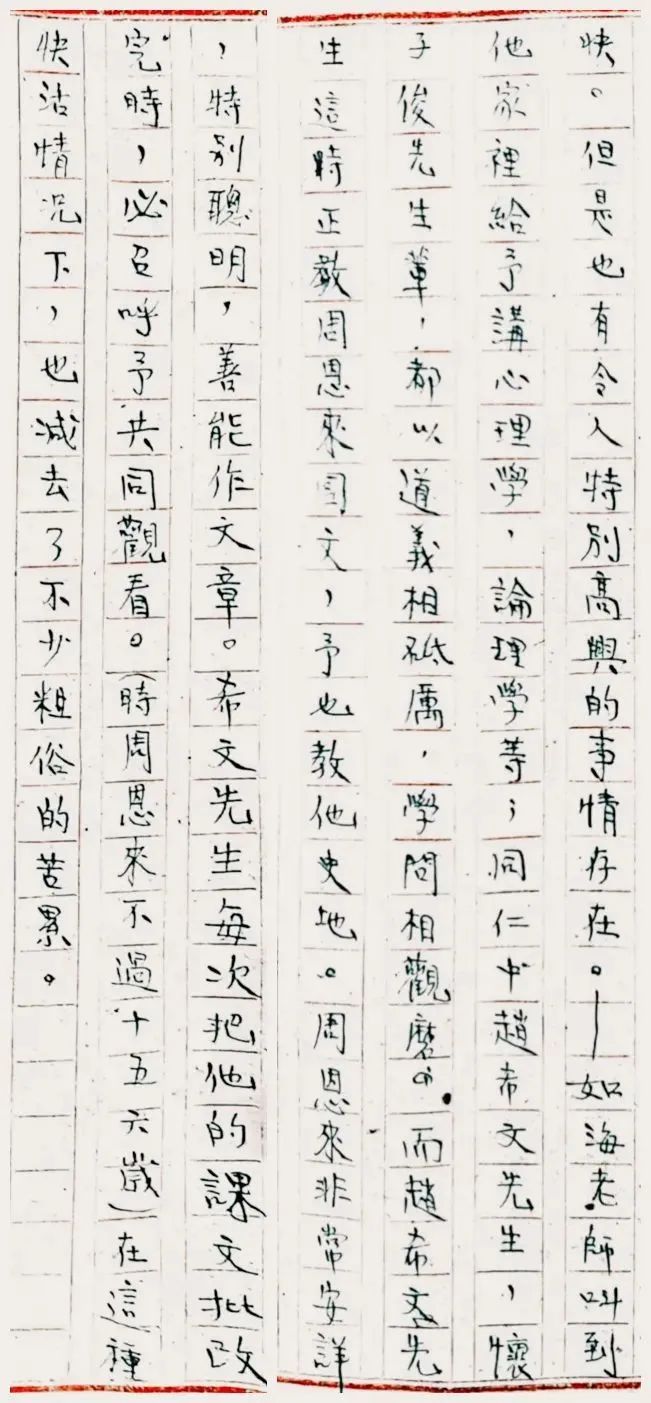 快。但是也有令人特別高興的事情存在。——如海老師叫到
他家裡給予講心理學，論理學等；同仁中趙希文先生，懷
子俊先生輩，都以道義相砥厲，學問相觀磨。而趙希文先
生這時正教周恩來国文，予也教他史地。周恩來非常安詳
，特別聰明，善能作文章。希文先生每次把他的課文批改
完時，必召呼予共同觀看。（時周恩來不過十五六歲）在這種
快活情况下，也減去了不少粗俗的苦累。